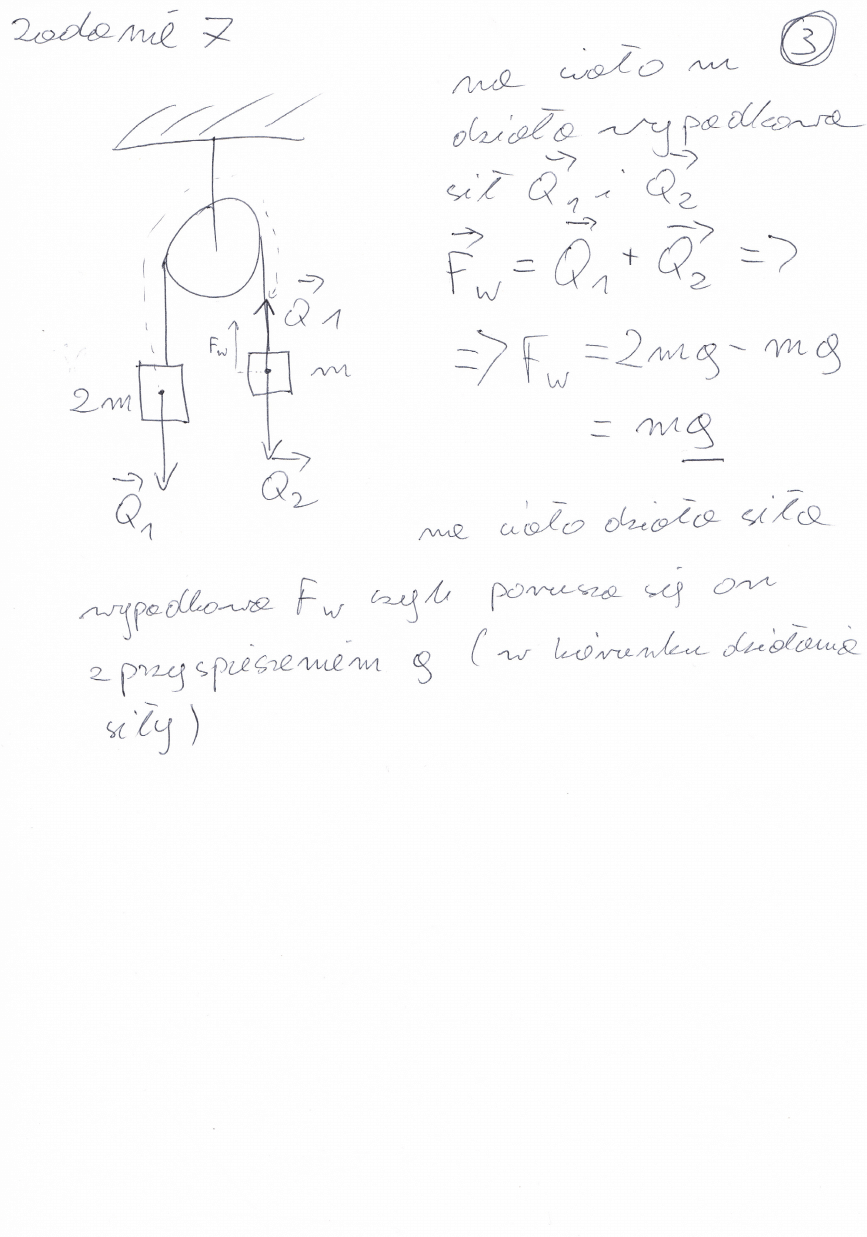 zadanie 7
3
na ciało m
działa wypadkowa
sił Q₁ i Q₂
F_w = Q₁ + Q₂ =>
=> F_w = 2mg - mg
= mg
Q₁
F_w
m
2m
Q₁
Q₂
na ciało działa siła
wypadkowa F_w czyli porusza się on
z przyspieszeniem g (w kierunku działania
siły)